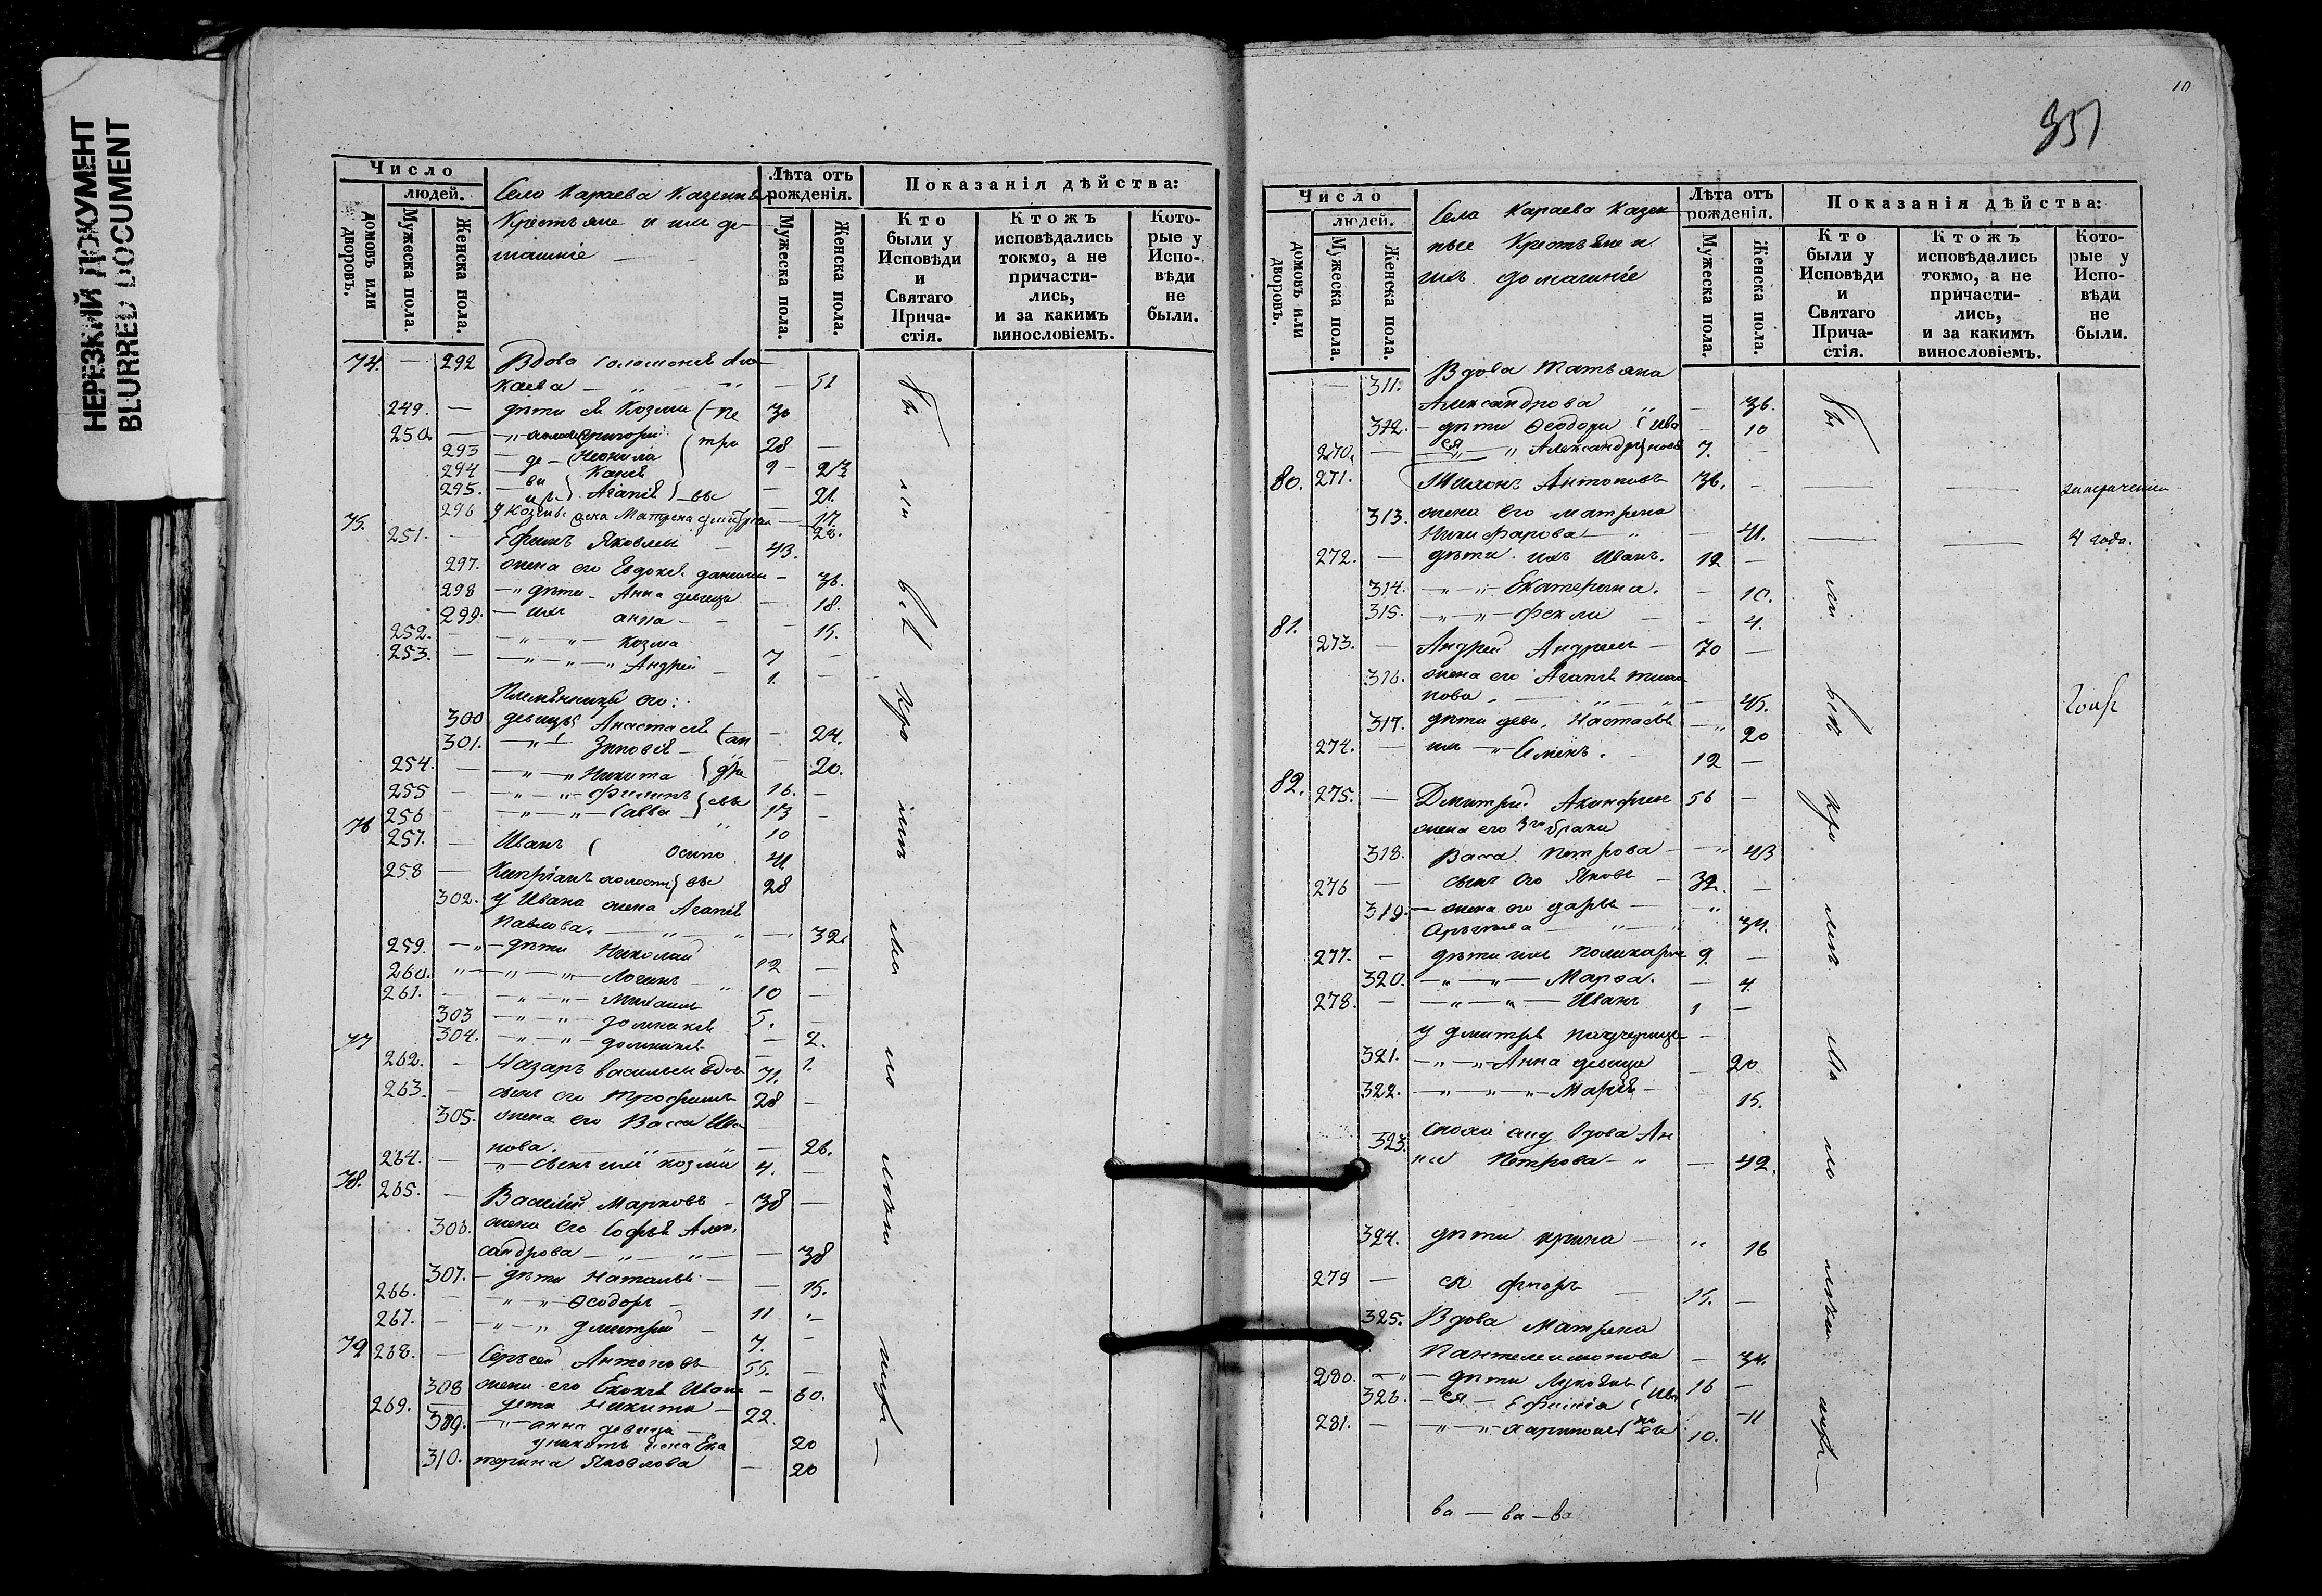 НЕРЕЗКИЙ ДОКУМЕНТ
BLURRED DOCUMENT
Число
людей.
домовъ или дворовъ.
Мужеска пола.
Женска пола.
Село Караева Казенные
Крестьяне и ихъ до
машніе
Лѣта отъ рожденія.
Мужеска пола.
Женска пола.
Показанія дѣйства:
Кто были у Исповѣди и Святаго Прича-стія.
Ктожъ исповѣдались токмо, а не причасти-лись, и за какимъ винословіемъ.
Кото-рые у Испо-вѣди не были.
74. — 292 Вдова
каева — 51
249. — дѣти ея Козма (Пе 30
250. — Григорій (тро 28 —
293 — де Неонила 9 — 23
294 — ви Капія — 21
295. — Агапія вы — 17
296 у Козмы жена Матрена 28.
75. 251. — Ефимъ Яковлев — 43.
297. жена его Евдокія — 36.
298 — дѣти — Анна девица — 18.
299. — ихъ анна — 15.
252. — Козма 7 —
253. — Андрей 1. —
Племянницы его:
300 девицы Анастасія (ан — 24.
301. — Зиновія — 20.
254. — Никита (дре 16. —
255 — Филипъ 13 —
256 — Савва 10
76 257. — Иванъ ( Осипо 41.
258 — Кипріанъ холостъ вы 28
302. у Ивана жена Агапія
Павлова. — 32.
259. — дѣти Николай 12 —
260. — Логинъ 10 —
261. — Михаилъ 5. —
303 — домникія — 2.
304. — домникія — 1.
77 262. — Назаръ Васильев вдов 71.
263. — сынъ его Трофимъ 28 —
305. жена его Васса Ива
нова. — 26.
264. — сынъ ихъ козма 4. —
78. 265. — Василій Марковъ — 38 —
306. жена его Софья Алек.
сандрова — 38
307. — дѣти Наталья — 15.
266. — Ѳеодоръ — 11 —
267. — дмитрій — 7. —
79 268. — Сергѣй Антоновъ 55. —
308 жена его Евдокія Ивана — 60.
269. — дети Никита — 22.
309. — анна девица — 20
у никиты жена Ека
310. терина Яковлова — 20
бы
ли
вси
про
ихъ
ма
ло
лѣтн
ихъ —
10
351
Число
людей.
домовъ или дворовъ.
Мужеска пола.
Женска пола.
Села Караева Казен
ные Крестьяне и
ихъ домашніе
Лѣта отъ рожденія.
Мужеска пола.
Женска пола.
Показанія дѣйства:
Кто были у Исповѣди и Святаго Прича-стія.
Ктожъ исповѣдались токмо, а не причасти-лись, и за какимъ винословіемъ.
Кото-рые у Испо-вѣди не были.
— 311. Вдова Татьяна
Александрова — 36.
312. — дѣти Ѳеодора (Ива — 10
270. — ея — Александръ новы 7. —
80. 271. Антоновъ 36. — — —
313. жена его матрена
Никифарова — 41. — — 4 года.
272. — дѣти ихъ Иванъ. 12 —
314. — Екатерина. — 10.
315. — Фекла — 4.
81. 273. — Андрей Андреевъ — 70 —
316. жена его Агапія
нова. — 45.
317. дѣти деви. Настасья — 20
274. — ихъ — Семенъ. 12 —
82. 275. — Дмитрій Акинфіев 56 —
жена его 3го брака
318. Васса Петрова — 43
276 — сынъ его Яковъ — 32. —
319. — жена его дарья —
— 34.
277. — дѣти ихъ Поликарпъ 9. —
320. — Марѳа. — 4.
278. — Иванъ 1 —
у дмитрія падчерицы —
321. — Анна девица — 20
322. — Марія — 15.
323. вдова Ан
на Петрова — 42.
324. дѣти ирина — 16
279 — ея 15. —
325. Вдова Матрена
Пантелеимонова — 34.
280. — дѣти (Ива 16 —
326. — ея — Ефимія — 11
281. — 10.
ва — ва — ва
бы
ли
всѣ
про
ихъ
ма
ло
лѣтн
ихъ —